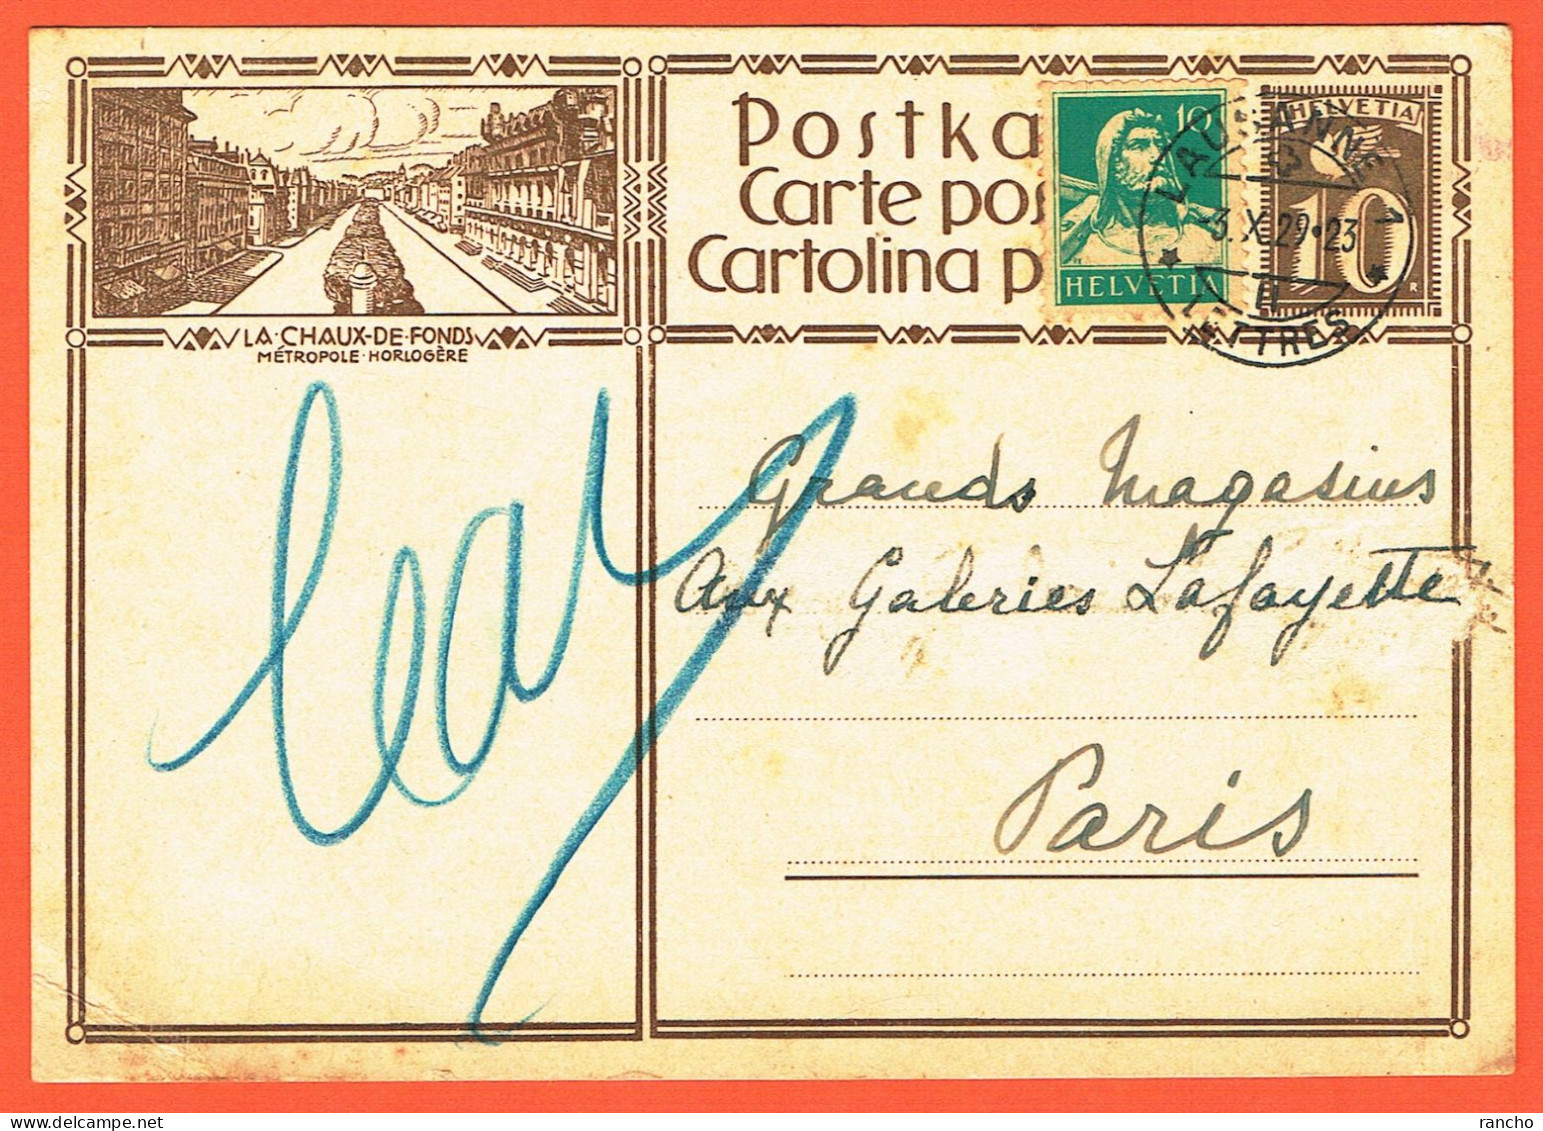 LA·CHAUX-DE-FONDS
MÉTROPOLE·HORLOGÈRE
Postka
Carte pos
Cartolina p
10
HELVETIA
HELVETIA
10
R
LAUSANNE 1
3.X.29·23
LETTRES
Grands Magasins
Aux Galeries Lafayette
Paris
rancho